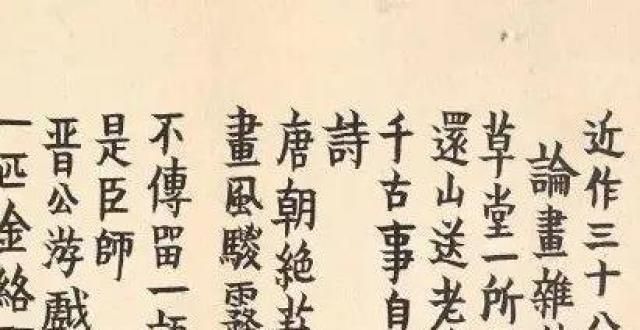 近作三十八
論畫雜
草堂一所
還山送老
千古事自
詩
唐朝絶藝
畫風驂霧
不傳留一
是臣師
晋公游戲
一匹金絡